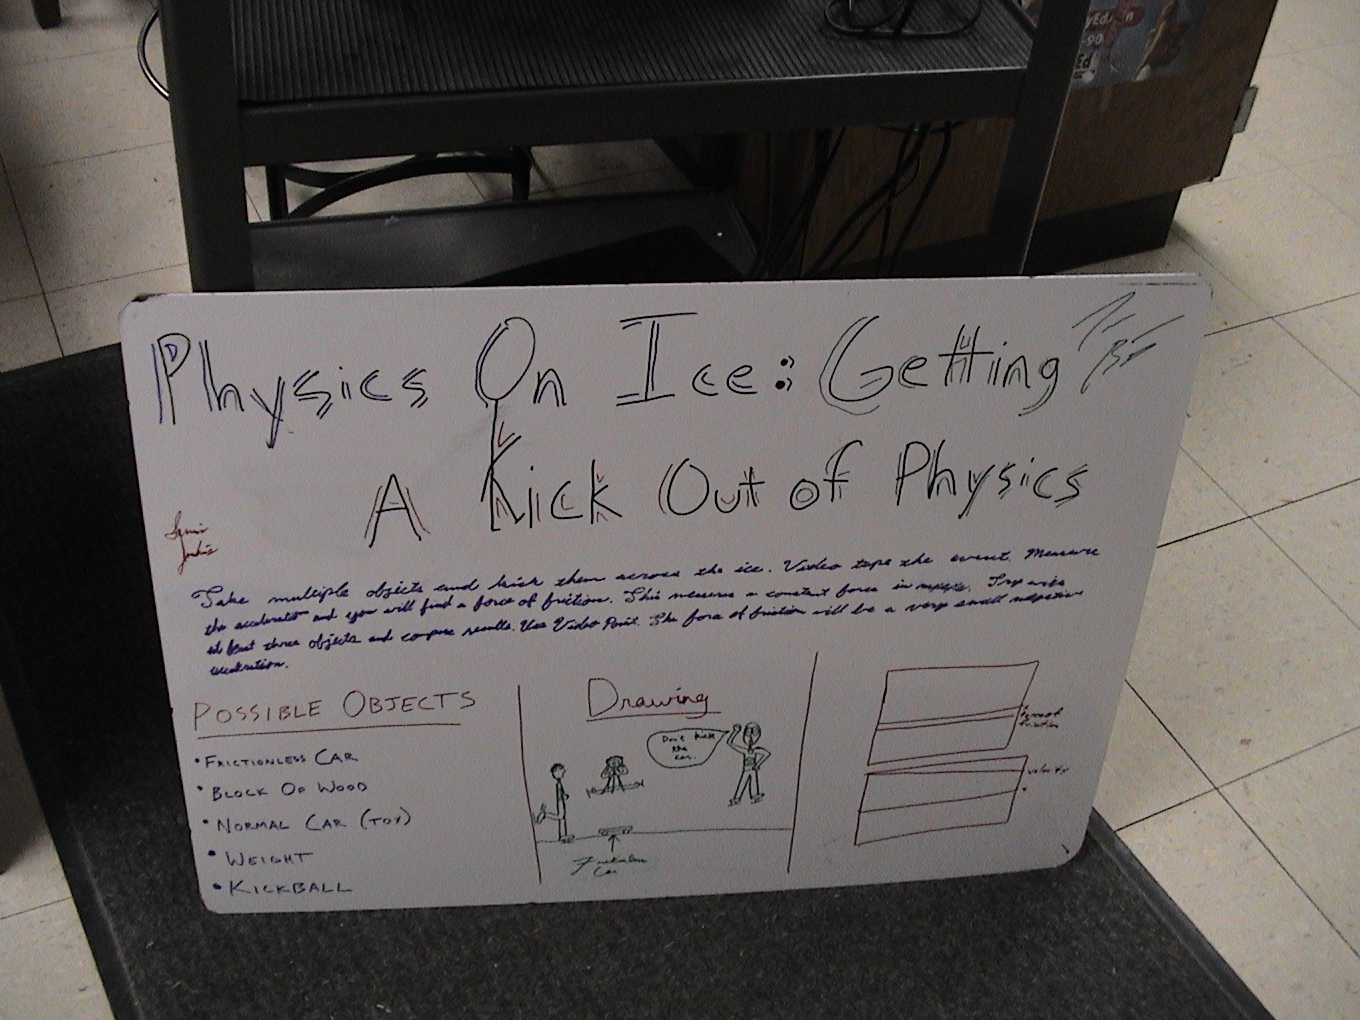 Physics On Ice: Getting
A Kick Out of Physics
Take multiple objects and kick them across the ice. Video tape the event. Measure
the acceleration and you will find a force of friction. This means a constant force in Try with
at least three objects and compare results. Use Video Point. The force of friction will be a very small negative
acceleration.
POSSIBLE OBJECTS
• FRICTIONLESS CAR
• BLOCK OF WOOD
• NORMAL CAR (TOY)
• WEIGHT
• KICKBALL
Drawing
Don't kick
the
car.
Frictionless
Car
friction
velocity